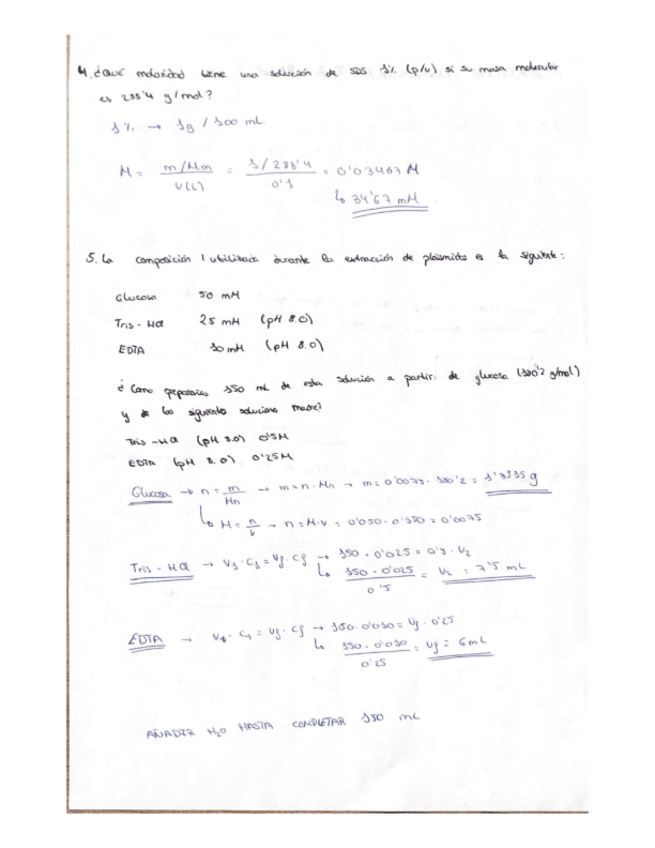 4. ¿Qué molaridad tiene una solución de SDS 1% (p/v) si su masa molecular
es 288'4 g/mol?
1% → 1g / 100 mL
M = m/Mm / V(L) = 1/288'4 / 0'1 = 0'03467 M
↳ 34'67 mM
5. La composición 1 utilizada durante la extracción de plásmidos es la siguiente:
Glucosa 50 mM
Tris-HCl 25 mM (pH 8.0)
EDTA 10 mM (pH 8.0)
¿Cómo prepararías 150 mL de esta solución a partir de glucosa (180'2 g/mol)
y de las siguientes soluciones madre?
Tris-HCl (pH 8.0) 0'5M
EDTA (pH 8.0) 0'25M
Glucosa → n = m/Mm → m = n·Mm → m = 0'0075 · 180'2 = 1'3515 g
↳ M = n/V → n = M·V = 0'050 · 0'150 = 0'0075
Tris-HCl → V1·C1 = Vf·Cf → 150 · 0'025 = 0'5 · V2
↳ 150 · 0'025 / 0'5 = V2 = 7'5 mL
EDTA → V1·C1 = Vf·Cf → 150·0'010 = Vf·0'25
↳ 150 · 0'010 / 0'25 = Vf = 6mL
AÑADIR H2O HASTA COMPLETAR 150 mL